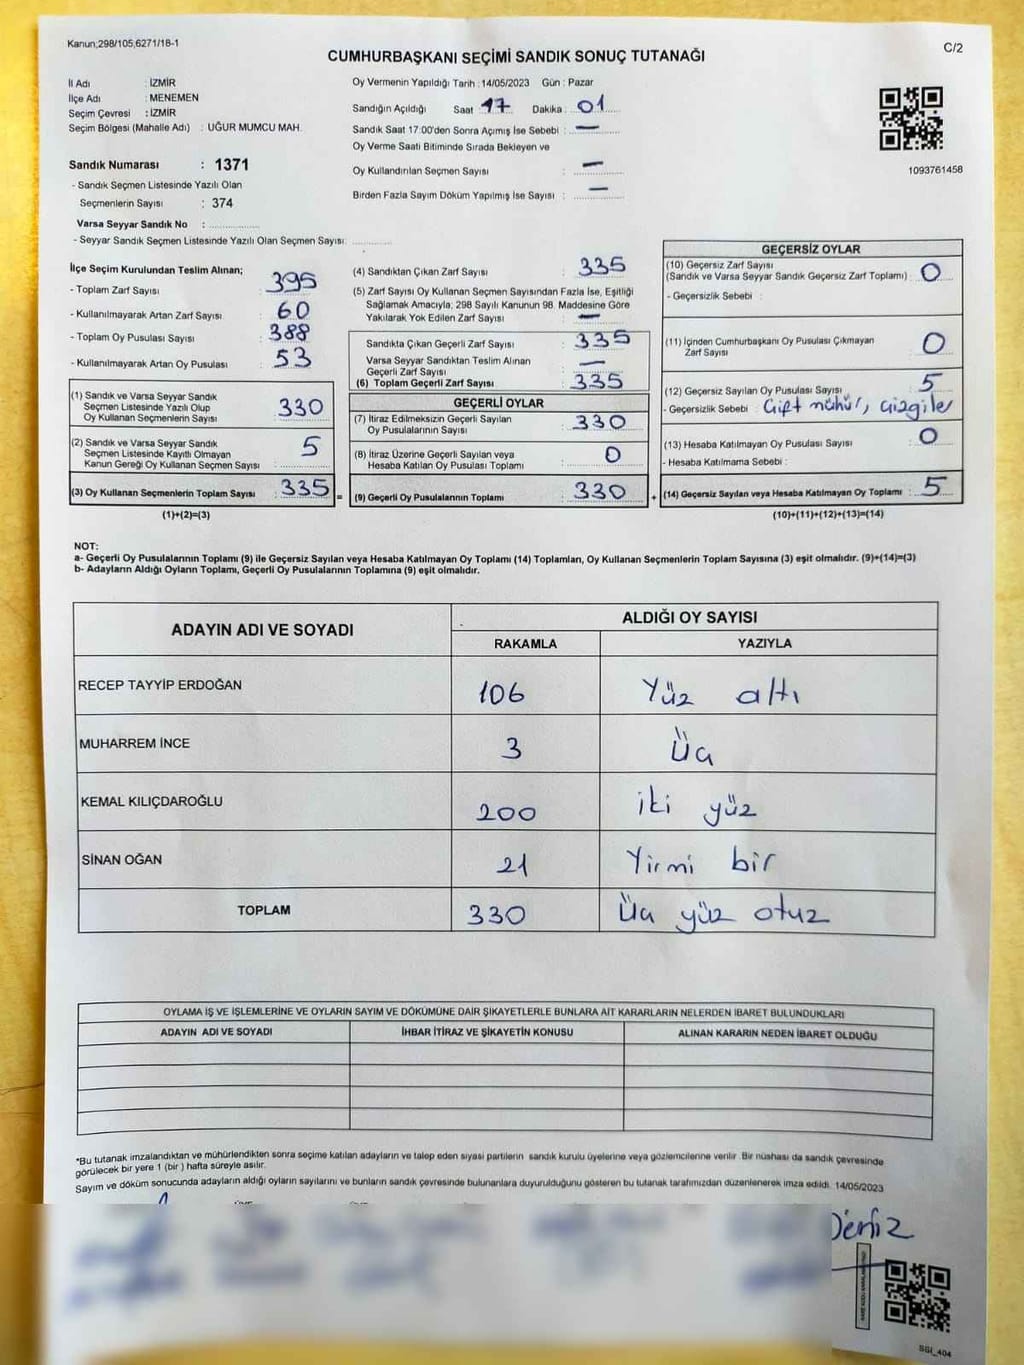 Kanun;298/105,6271/18-1
C/2
CUMHURBAŞKANI SEÇİMİ SANDIK SONUÇ TUTANAĞI
İl Adı : İZMİR
İlçe Adı : MENEMEN
Seçim Çevresi : İZMİR
Seçim Bölgesi (Mahalle Adı) : UĞUR MUMCU MAH.
Sandık Numarası : 1371
- Sandık Seçmen Listesinde Yazılı Olan
Seçmenlerin Sayısı : 374
Varsa Seyyar Sandık No : ..............
- Seyyar Sandık Seçmen Listesinde Yazılı Olan Seçmen Sayısı: ............
Oy Vermenin Yapıldığı Tarih : 14/05/2023 Gün : Pazar
Sandığın Açıldığı Saat 17 Dakika : 01
Sandık Saat 17:00'den Sonra Açımış İse Sebebi : —
Oy Verme Saati Bitiminde Sırada Bekleyen ve
Oy Kullandırılan Seçmen Sayısı : —
Birden Fazla Sayım Döküm Yapılmış İse Sayısı : —
1093761458
İlçe Seçim Kurulundan Teslim Alınan;
- Toplam Zarf Sayısı : 395
- Kullanılmayarak Artan Zarf Sayısı : 60
- Toplam Oy Pusulası Sayısı : 388
- Kullanılmayarak Artan Oy Pusulası : 53
(1) Sandık ve Varsa Seyyar Sandık
Seçmen Listesinde Yazılı Olup
Oy Kullanan Seçmenlerin Sayısı : 330
(2) Sandık ve Varsa Seyyar Sandık
Seçmen Listesinde Kayıtlı Olmayan
Kanun Gereği Oy Kullanan Seçmen Sayısı : 5
(3) Oy Kullanan Seçmenlerin Toplam Sayısı : 335 =
(1)+(2)=(3)
(4) Sandıktan Çıkan Zarf Sayısı : 335
(5) Zarf Sayısı Oy Kullanan Seçmen Sayısından Fazla İse, Eşitliği
Sağlamak Amacıyla; 298 Sayılı Kanunun 98. Maddesine Göre
Yakılarak Yok Edilen Zarf Sayısı : —
Sandıkta Çıkan Geçerli Zarf Sayısı : 335
Varsa Seyyar Sandıktan Teslim Alınan
Geçerli Zarf Sayısı : —
(6) Toplam Geçerli Zarf Sayısı : 335
GEÇERLİ OYLAR
(7) İtiraz Edilmeksizin Geçerli Sayılan
Oy Pusulalarının Sayısı : 330
(8) İtiraz Üzerine Geçerli Sayılan veya
Hesaba Katılan Oy Pusulası Toplamı : 0
(9) Geçerli Oy Pusulalarının Toplamı : 330 +
GEÇERSİZ OYLAR
(10) Geçersiz Zarf Sayısı
(Sandık ve Varsa Seyyar Sandık Geçersiz Zarf Toplamı) : 0
- Geçersizlik Sebebi :
(11) İçinden Cumhurbaşkanı Oy Pusulası Çıkmayan
Zarf Sayısı : 0
(12) Geçersiz Sayılan Oy Pusulası Sayısı : 5
- Geçersizlik Sebebi : Çift mühür, çizgiler
(13) Hesaba Katılmayan Oy Pusulası Sayısı : 0
- Hesaba Katılmama Sebebi :
(14) Geçersiz Sayılan veya Hesaba Katılmayan Oy Toplamı : 5
(10)+(11)+(12)+(13)=(14)
NOT:
a- Geçerli Oy Pusulalarının Toplamı (9) ile Geçersiz Sayılan veya Hesaba Katılmayan Oy Toplamı (14) Toplamları, Oy Kullanan Seçmenlerin Toplam Sayısına (3) eşit olmalıdır. (9)+(14)=(3)
b- Adayların Aldığı Oyların Toplamı, Geçerli Oy Pusulalarının Toplamına (9) eşit olmalıdır.
ADAYIN ADI VE SOYADI
ALDIĞI OY SAYISI
RAKAMLA YAZIYLA
RECEP TAYYİP ERDOĞAN 106 Yüz altı
MUHARREM İNCE 3 Üç
KEMAL KILIÇDAROĞLU 200 İki yüz
SİNAN OĞAN 21 Yirmi bir
TOPLAM 330 Üç yüz otuz
OYLAMA İŞ VE İŞLEMLERİNE VE OYLARIN SAYIM VE DÖKÜMÜNE DAİR ŞİKAYETLERLE BUNLARA AİT KARARLARIN NELERDEN İBARET BULUNDUKLARI
ADAYIN ADI VE SOYADI İHBAR İTİRAZ VE ŞİKAYETİN KONUSU ALINAN KARARIN NEDEN İBARET OLDUĞU
*Bu tutanak imzalandıktan ve mühürlendikten sonra seçime katılan adayların ve talep eden siyasi partilerin sandık kurulu üyelerine veya gözlemcilerine verilir. Bir nüshası da sandık çevresinde
görülecek bir yere 1 (bir ) hafta süreyle asılır.
Sayım ve döküm sonucunda adayların aldığı oyların sayılarını ve bunların sandık çevresinde bulunanlara duyurulduğunu gösteren bu tutanak tarafımızdan düzenlenerek imza edildi. 14/05/2023
Deniz
SGI_404